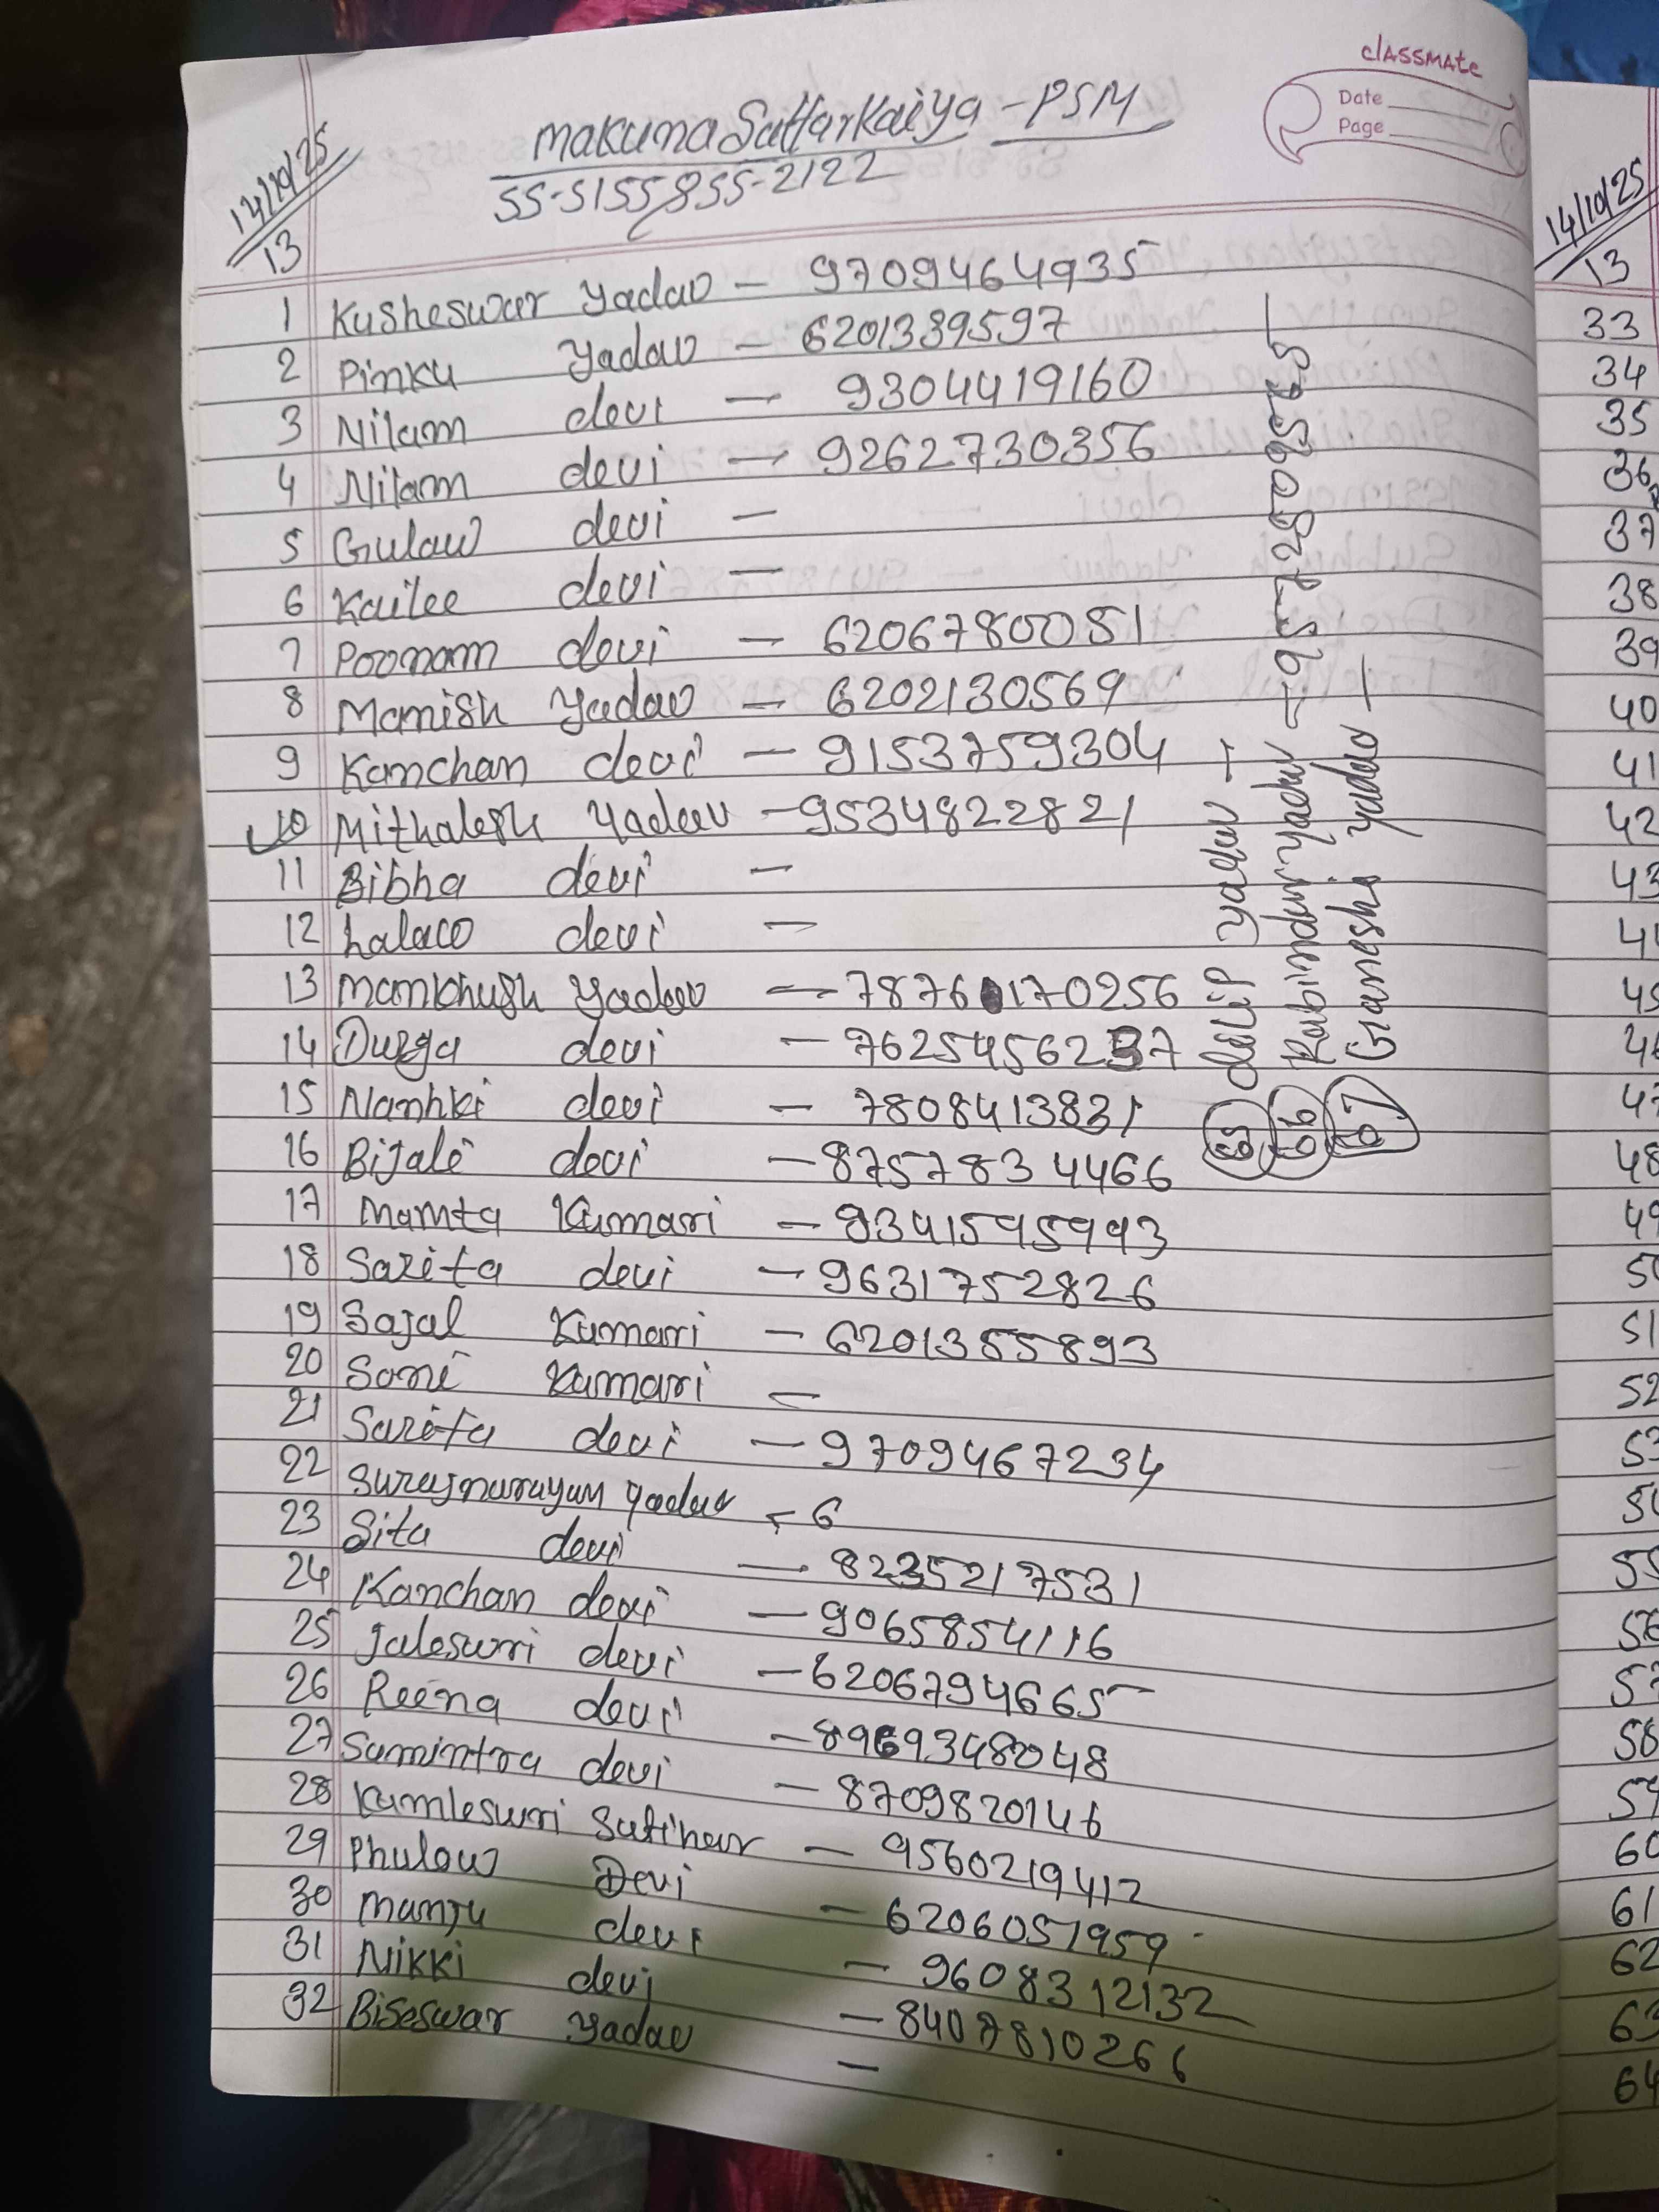 classmate
Date
Page
Makuna Sattarkaiya - PSM
SS-5155855-2122
14/10/25
13
1 Kusheswar Yadav - 9709464935
2 Pinku Yadav - 6201339597
3 Nilam devi - 9304419160
4 Nilam devi - 9262730356
5 Gulaw devi -
6 Kailee devi -
7 Poonam devi - 6206780051
8 Manish Yadav - 6202130569
9 Kanchan devi - 9153759304
10 Mithalesh Yadav - 9534822821
11 Bibha devi -
12 Lalaco devi -
13 Mankhush Yadav - 78760170256
14 Durga devi - 7625456237
15 Nanhki devi - 7808413831
16 Bijali devi - 8757834466
17 Mamta Kumari - 9341595993
18 Sarita devi - 9631752826
19 Sajal Kumari - 6201355893
20 Soni Kumari -
21 Sarita devi - 9709467234
22 Surajnarayan Yadav - 6
23 Sita devi - 8235217531
24 Kanchan devi - 9065854116
25 Jaleswri devi - 6206794665
26 Reena devi - 8969348048
27 Sumintra devi - 8709820146
28 Kamleswri Satihar - 9560219412
29 Phulow Devi - 6206051959
30 Manju devi - 9608312132
31 Nikki devi - 8407810266
32 Biseswar Yadav -
65 Dilip Yadav -
66 Rabindar Yadav -
67 Ganesh Yadav -
14/10/25
13
33
34
35
36
37
38
39
40
41
42
43
45
48
51
52
55
58
60
61
62
63
64